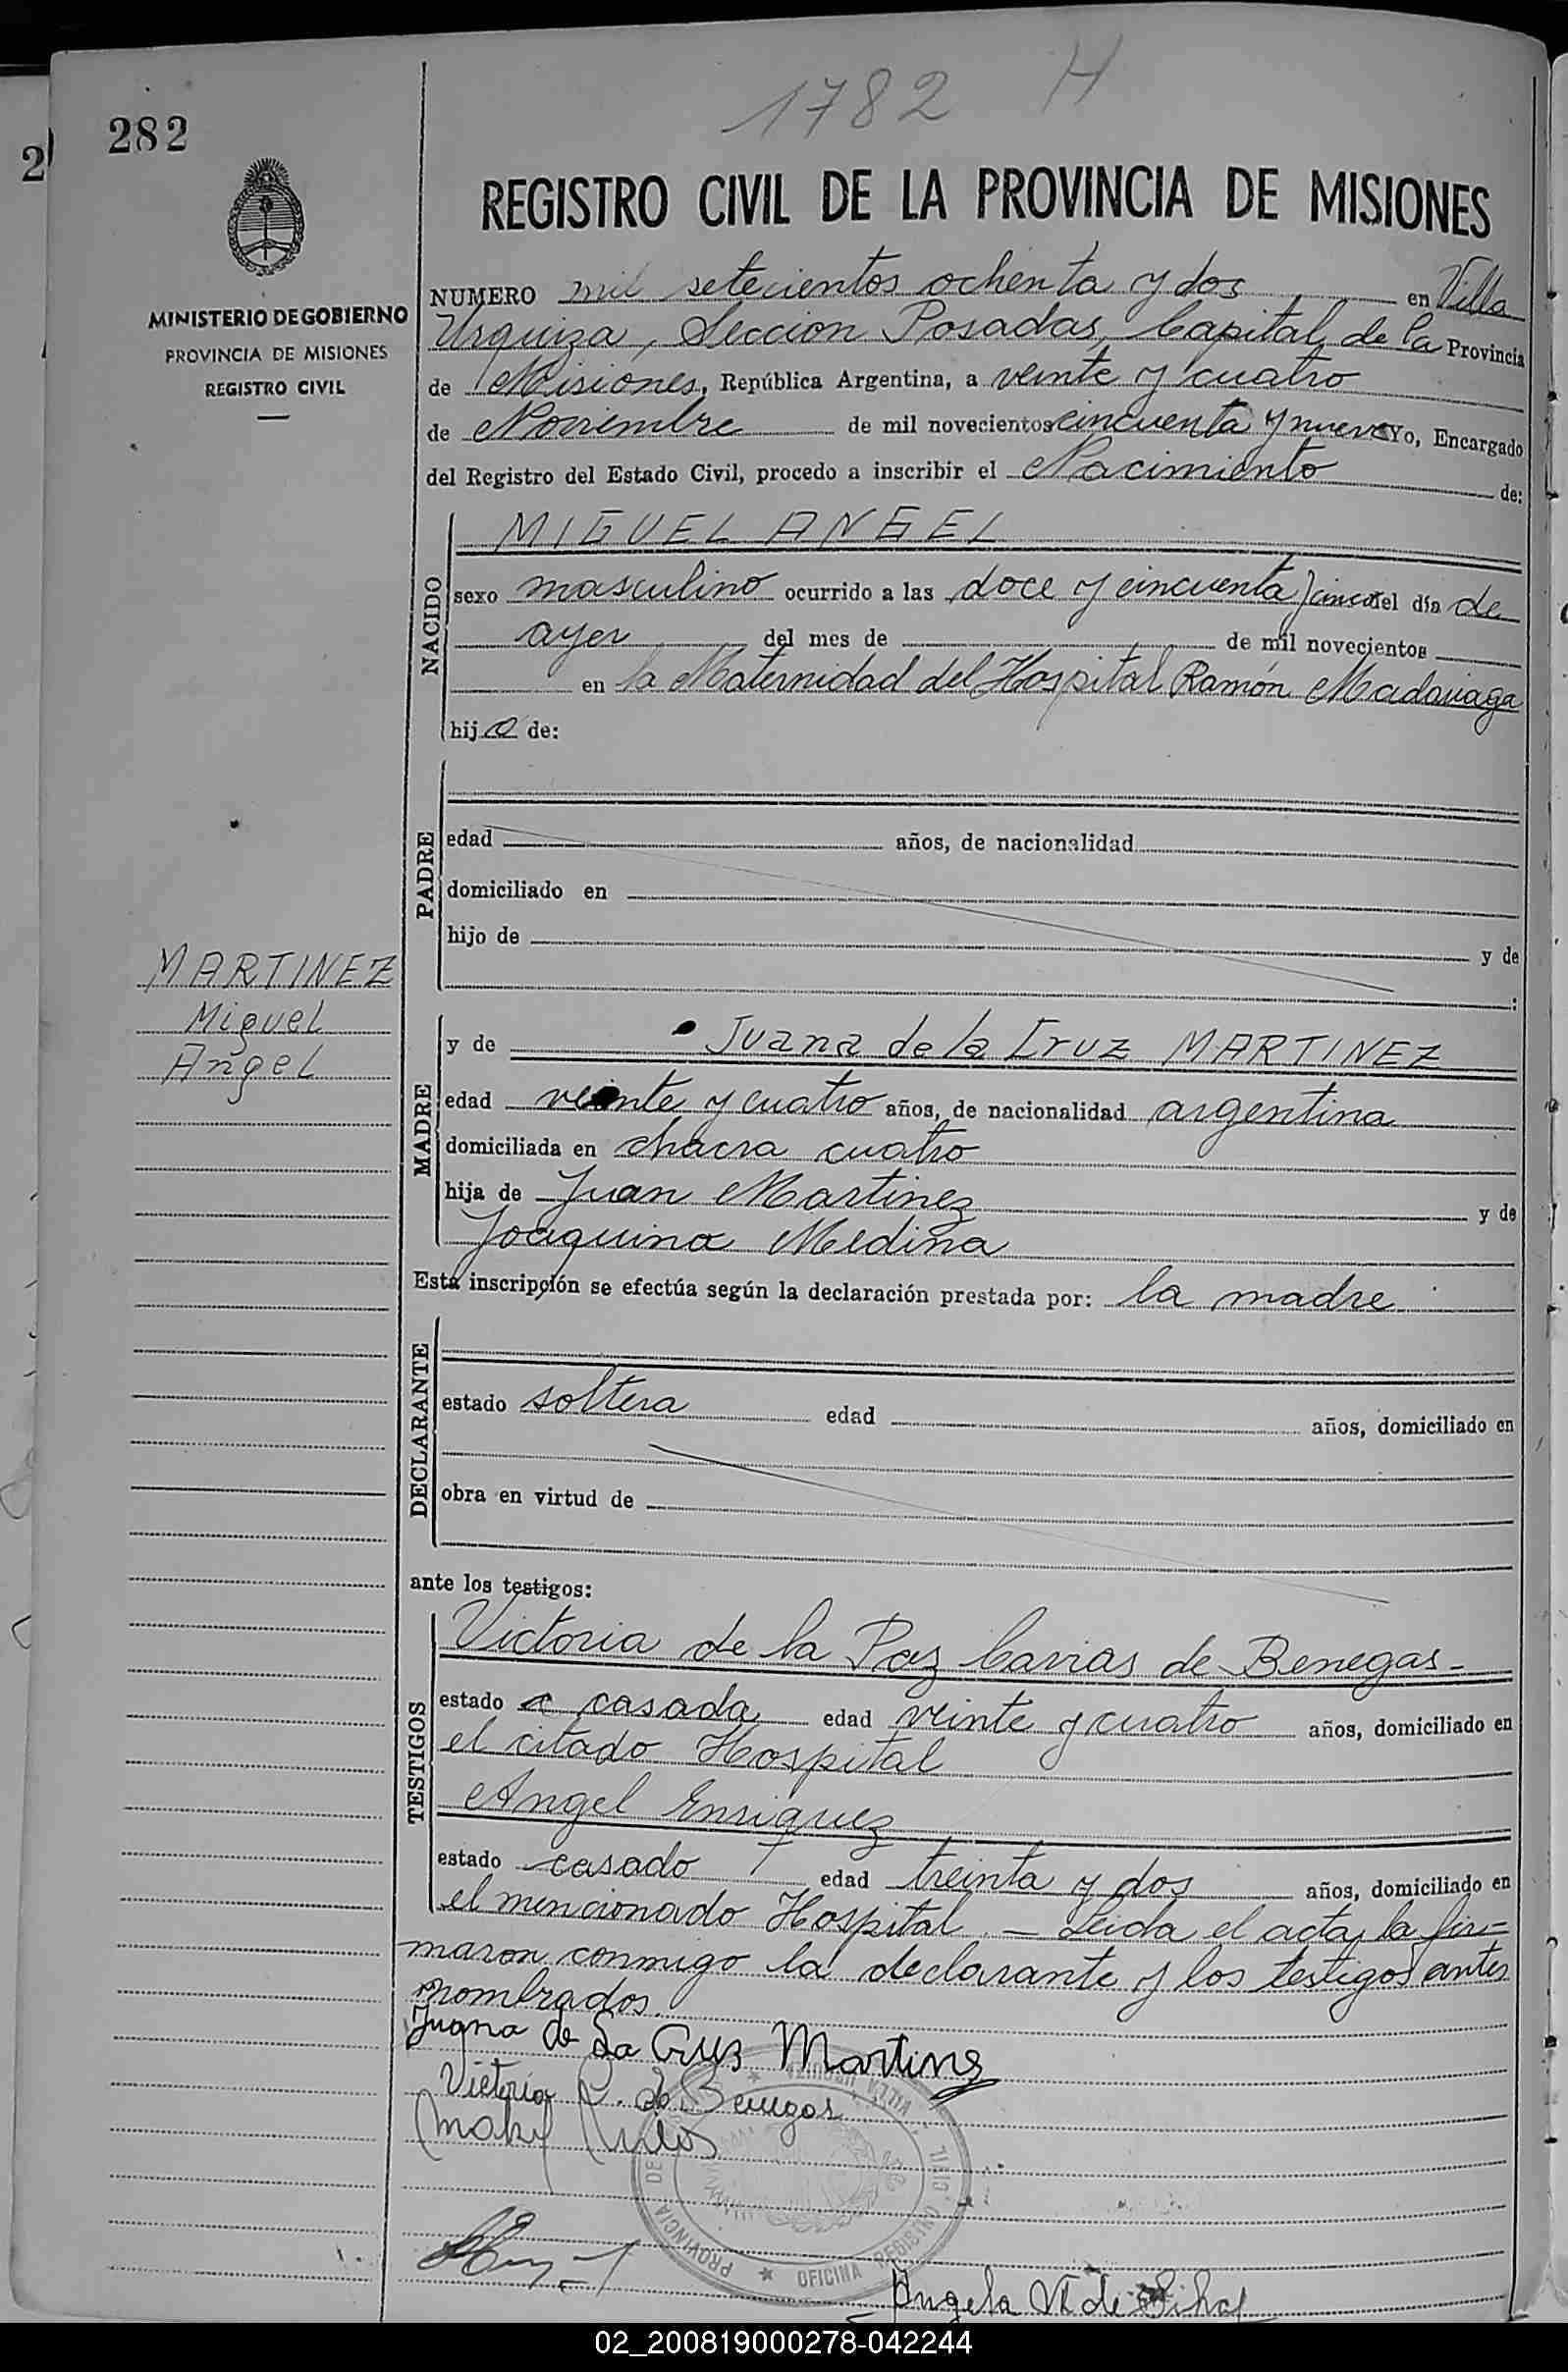 1782 H
282
2
REGISTRO CIVIL DE LA PROVINCIA DE MISIONES
MINISTERIO DE GOBIERNO
PROVINCIA DE MISIONES
REGISTRO CIVIL
NUMERO mil setecientos ochenta y dos en Villa
Urquiza, Seccion Posadas, Capital de la Provincia
de Misiones, República Argentina, a veinte y cuatro
de Noviembre de mil novecientos cincuenta y nueve Yo, Encargado
del Registro del Estado Civil, procedo a inscribir el Nacimiento de:
NACIDO
MIGUEL ANGEL
sexo masculino ocurrido a las doce y cincuenta y cinco del día de
ayer del mes de de mil novecientos
en la Maternidad del Hospital Ramón Madariaga
hijo de:
PADRE
edad años, de nacionalidad
domiciliado en
hijo de y de
:
MARTINEZ
Miguel
Angel
MADRE
y de Juana de la Cruz MARTINEZ
edad veinte y cuatro años, de nacionalidad argentina
domiciliada en chacra cuatro
hija de Juan Martinez y de
Joaquina Medina
Esta inscripción se efectúa según la declaración prestada por: la madre
DECLARANTE
estado soltera edad años, domiciliado en
obra en virtud de
ante los testigos:
TESTIGOS
Victoria de la Paz Carias de Benegas-
estado casada edad veinte y cuatro años, domiciliado en
el citado Hospital
Angel Enriquez
estado casado edad treinta y dos años, domiciliado en
el mencionado Hospital. - Leida el acta, la fir=
maron conmigo la declarante y los testigos antes
nombrados.
Juana de La Cruz Martinez
Victoria C. de Benegas
PROVINCIA DE
OFICINA REGISTRO CIVIL
VILLA URQUIZA
Angela M de
02_200819000278-042244